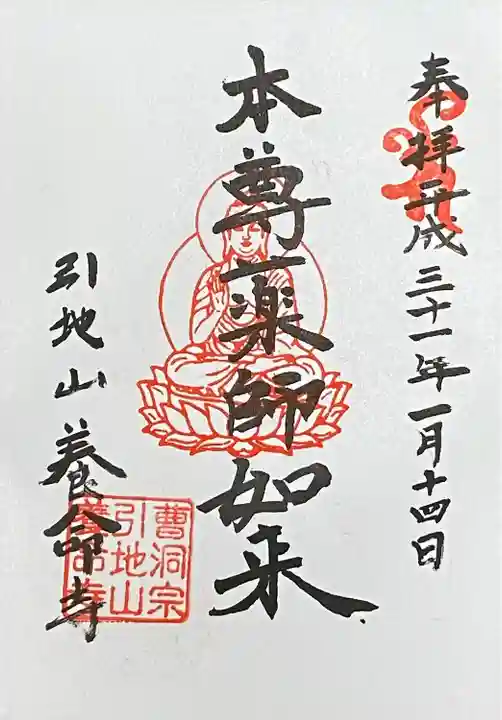 奉拝 平成三十一年一月十四日
本尊薬師如来
引地山 養命寺
曹洞宗
引地山
養命寺